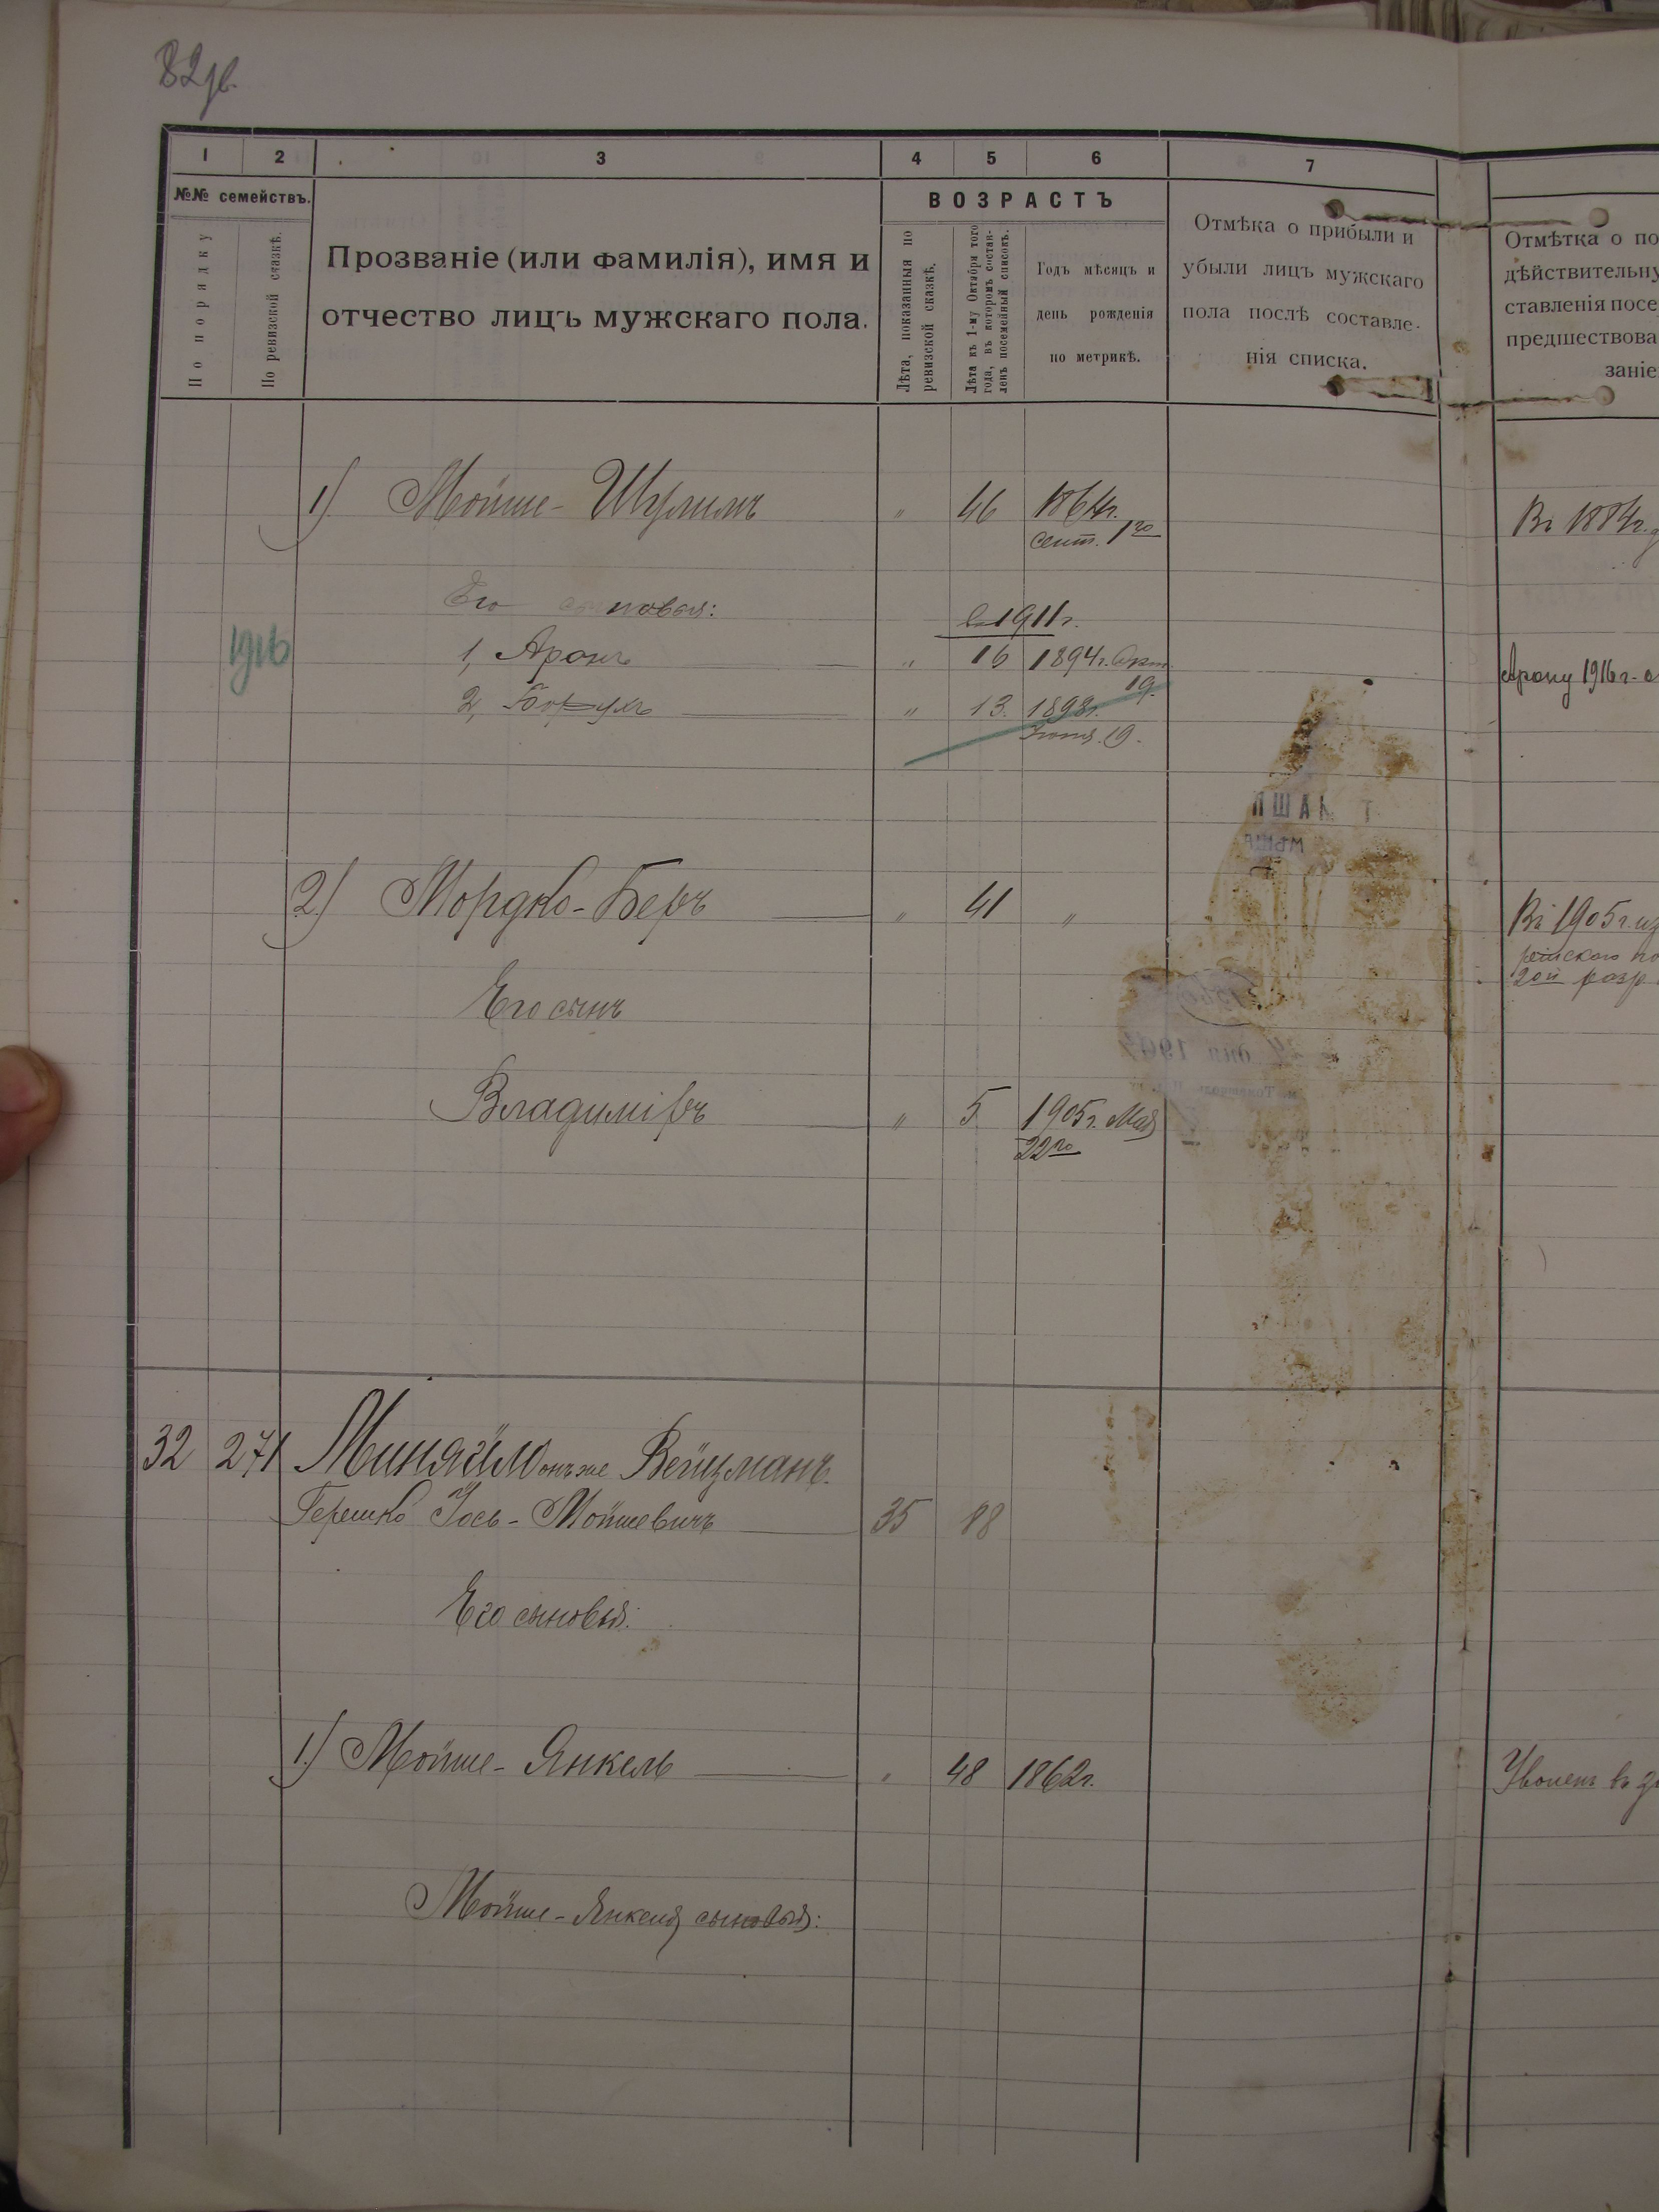 82 об.
1 2 3 4 5 6 7
№№ семействъ.
По порядку
По ревизской сказкѣ.
Прозваніе (или фамилія), имя и
отчество лицъ мужскаго пола.
ВОЗРАСТЪ
Лѣта, показанныя по
ревизской сказкѣ.
Лѣта къ 1-му Октября того
года, въ которомъ состав-
ленъ посемейный списокъ.
Годъ мѣсяцъ и
день рожденія
по метрикѣ.
Отмѣка о прибыли и
убыли лицъ мужскаго
пола послѣ составле-
нія списка.
Отмѣтка о по
дѣйствительну
ставленія посе
предшествова
заніе
1) Мойше-Шулимъ " 46 1864г. Въ 1884г.
сент. 1го
Его сыновья: въ 1911г.
1916 1, Аронъ " 16 1894г. Арону 1916г.
19.
2, Борухъ " 13. 1898г.
Іюня. 19.
2) Мордко-Беръ " 41 " Въ 1905г. из
2ой разр
Его сынъ
Владиміръ " 5 1905г. Мая
22го
32 271 Миняйло онъ же Вейцманъ.
Гершко Іось-Мойшевичъ 35 88
Его сыновья:
1) Мойше-Янкель " 48 1862г. Уволенъ въ
Мойше-Янкеля сыновья: